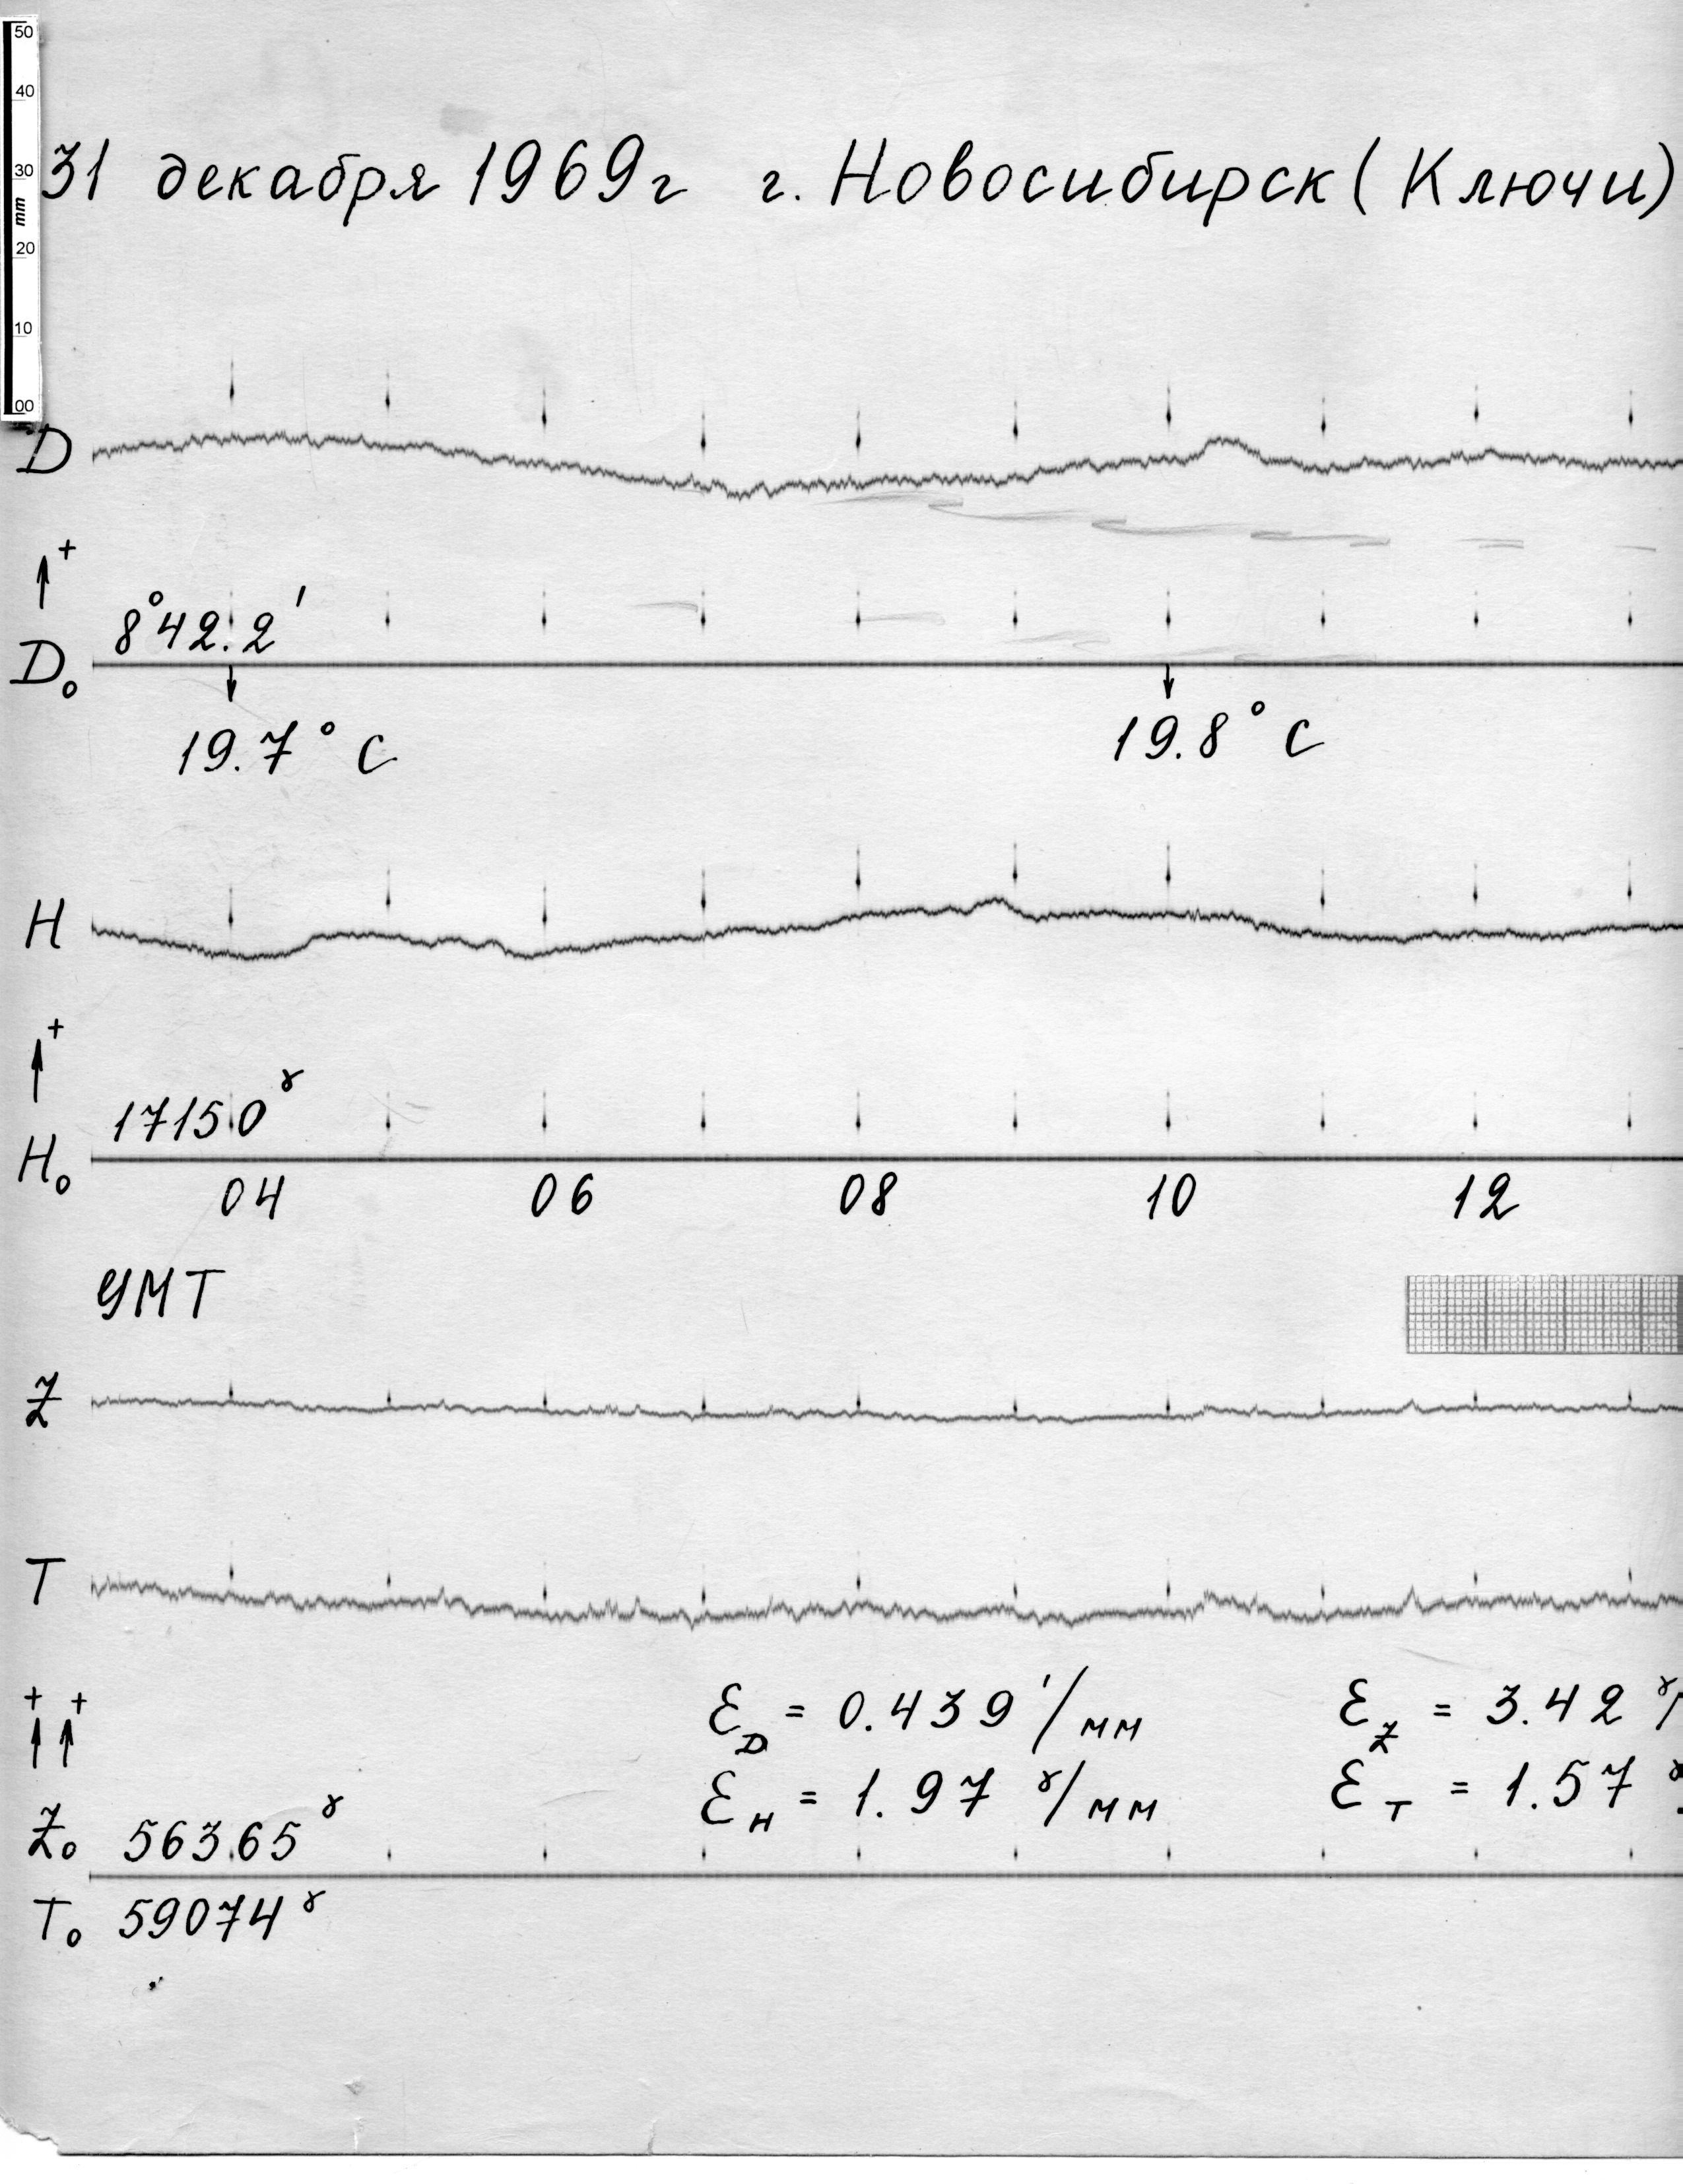 50
40
30
mm
20
10
00
31 декабря 1969г г. Новосибирск (Ключи)
D
+
8°42.2'
D₀
19.7°C 19.8°C
H
+
17150ᵞ
H₀
04 06 08 10 12
УМТ
Z
T
+ +
Ɛ_D = 0.439'/мм Ɛ_Z = 3.42ᵞ/
Ɛ_H = 1.97ᵞ/мм Ɛ_T = 1.57ᵞ
Z₀ 56365ᵞ
T₀ 59074ᵞ